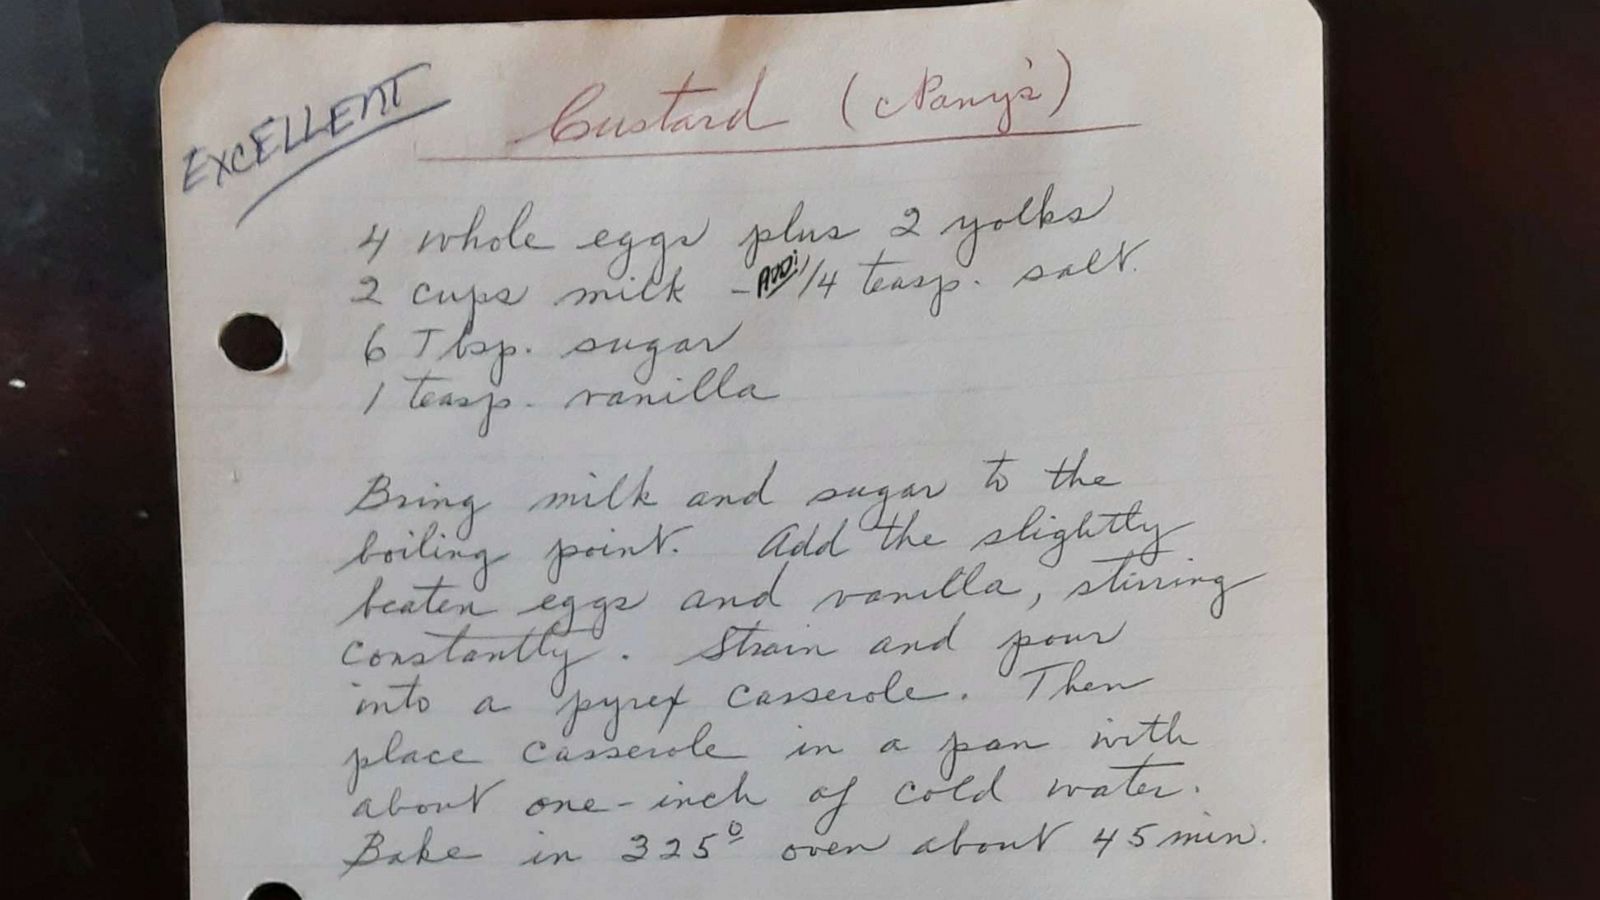 EXCELLENT
Custard (Nany's)
4 whole eggs plus 2 yolks
2 cups milk - ADD: 1/4 teasp. salt.
6 Tbsp. sugar
1 teasp. vanilla
Bring milk and sugar to the
boiling point. Add the slightly
beaten eggs and vanilla, stirring
constantly. Strain and pour
into a pyrex casserole. Then
place casserole in a pan with
about one-inch of cold water.
Bake in 325° oven about 45 min.